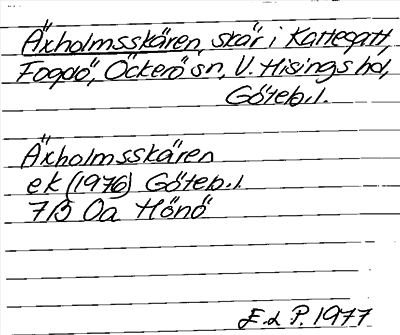 Äxholmsskären, skär i Kattegatt,
Fogdö, Öckerö sn, V. Hisings hd,
Göteb.l.
Äxholmsskären
ek (1976) Göteb.l.
7B 0a Hönö
E.d P. 1977